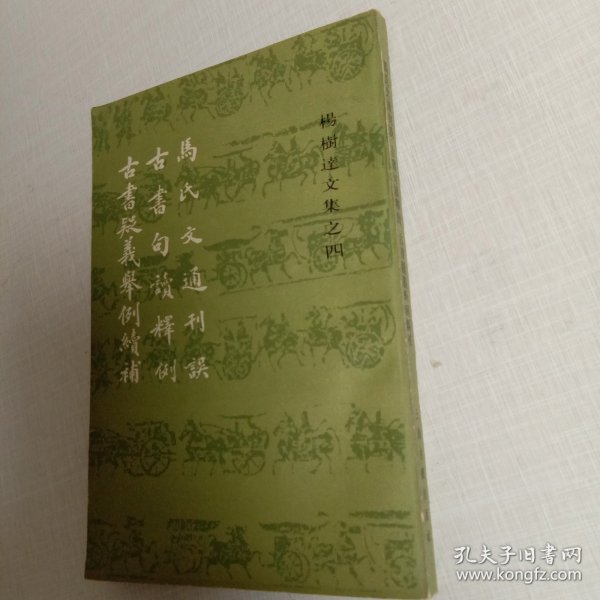 楊樹達文集之四
馬氏文通刊誤
古書句讀釋例
古書疑義舉例續補
孔夫子旧書网
www.kongfz.com